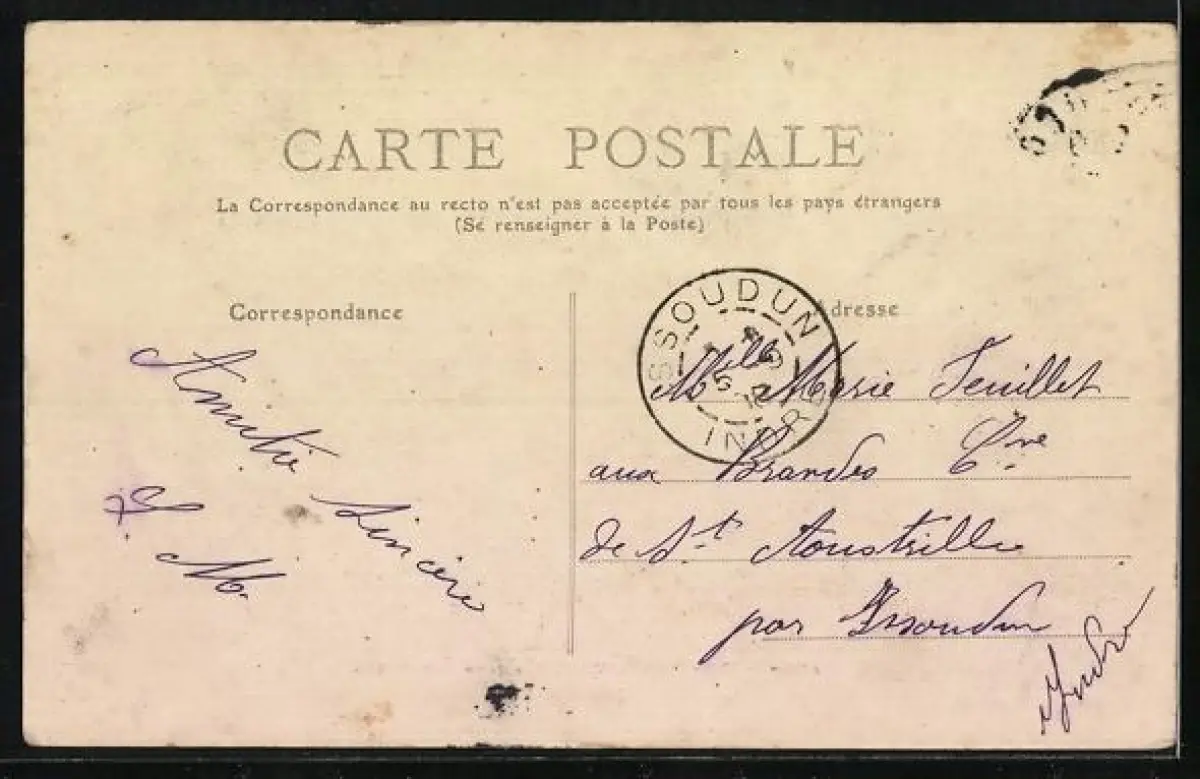 CARTE POSTALE
La Correspondance au recto n'est pas acceptée par tous les pays étrangers
(Se renseigner à la Poste)
Correspondance
Adresse
ISSOUDUN
INDRE
Amitié
Sincère
M
Mlle Marie Feuillet
aux Brandes Cne
de St Aoustrille
par Issoudun
Indre